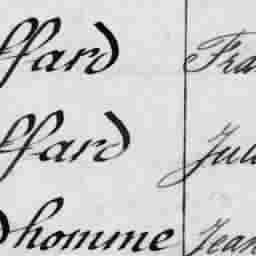 ffard Fra
ffard Jul
dhomme Jean